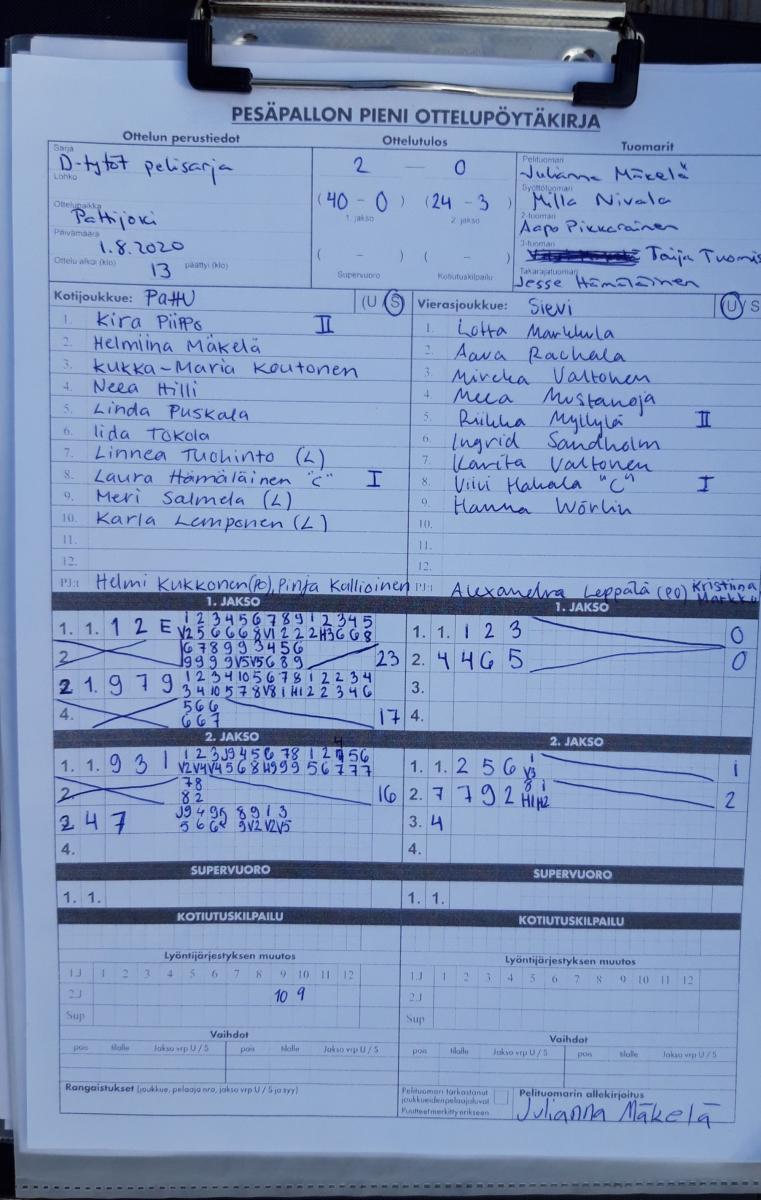 PESÄPALLON PIENI OTTELUPÖYTÄKIRJA
Ottelun perustiedot Ottelutulos Tuomarit
Sarja
D-tytöt pelisarja
Lohko
Ottelupaikka
Pattijoki
Päivämäärä
1.8.2020
Ottelu alkoi (klo) 13 päättyi (klo)
2 — 0
(40 - 0) (24 - 3)
1. jakso 2. jakso
( - ) ( - )
Supervuoro Kotiutuskilpailu
Pelituomari
Julianna Mäkelä
Syöttötuomari
Milla Nivala
2-tuomari
Aapo Pikkarainen
3-tuomari
Taija Tuomis
Takarajatuomari
Jesse Hämäläinen
Kotijoukkue: PattU (U S)
1. Kira Piippo II
2. Helmiina Mäkelä
3. Kukka-Maria Koutonen
4. Neea Hilli
5. Linda Puskala
6. Iida Tokola
7. Linnea Tuohinto (L)
8. Laura Hämäläinen "C" I
9. Meri Salmela (L)
10. Karla Lemponen (L)
11.
12.
PJ:t Helmi Kukkonen (PO), Pinja Kallioinen
Vierasjoukkue: Sievi (U S
1. Lotta Markkula
2. Aava Rachala
3. Mircka Valtonen
4. Meea Mustanoja
5. Riikka Myllylä II
6. Ingrid Sandholm
7. Karita Valtonen
8. Viivi Hakala "C" I
9. Hanna Wörlin
10.
11.
12.
PJ:t Alexandra Leppälä (PO) Kristiina
1. JAKSO
1. 1. 1 2 E 1 2 3 4 5 6 7 8 9 1 2 3 4 5
V2 5 6 6 6 8 V1 2 2 2 H3 6 6 8
2. 6 7 8 9 9 3 4 5 6
9 9 9 9 V5 V5 6 8 9 23
2 1. 9 7 9 1 2 3 4 10 5 6 7 8 1 2 2 3 4
3 4 10 5 7 8 V8 1 H1 2 2 3 4 6
4. 5 6 6
6 6 7 17
1. JAKSO
1. 1. 1 2 3 0
2. 4 4 6 5 0
3.
4.
2. JAKSO
1. 1. 9 3 1 1 2 3 J9 4 5 6 7 8 1 2 4 5 6
V2 V4 V4 5 6 8 H9 9 9 5 6 7 7 7
2. 7 8
8 2 16
3 4 7 J9 4 9 5 8 9 1 3
5 6 6 9 V2 V2 V5
4.
2. JAKSO
1. 1. 2 5 6 1
V3 1
2. 7 7 9 2 8 1
H1 H2 2
3. 4
4.
SUPERVUORO
1. 1.
SUPERVUORO
1. 1.
KOTIUTUSKILPAILU
KOTIUTUSKILPAILU
Lyöntijärjestyksen muutos
1.J 1 2 3 4 5 6 7 8 9 10 11 12
2.J 10 9
Sup
Lyöntijärjestyksen muutos
1.J 1 2 3 4 5 6 7 8 9 10 11 12
2.J
Sup
Vaihdot
pois tilalle Jakso vrp U / S pois tilalle Jakso vrp U / S
Vaihdot
pois tilalle Jakso vrp U / S pois tilalle Jakso vrp U / S
Rangaistukset (joukkue, pelaaja nro, jakso vrp U / S ja syy)
Pelituomari tarkastanut
joukkueiden pelaajaluvat
Puutteet merkitty erikseen
Pelituomarin allekirjoitus
Julianna Mäkelä